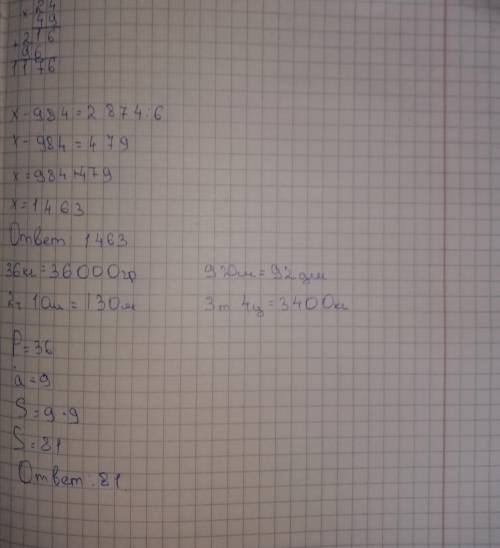 × 24
49
216
+ 96
1176
x - 984 = 2 874 : 6
x - 984 = 479
x = 984 + 479
x = 1463
Ответ 1463
36кг = 36000гр 920см = 92дм
2ч 10м = 130м 3т 4ц = 3400кг
P = 36
a = 9
S = 9 · 9
S = 81
Ответ: 81.